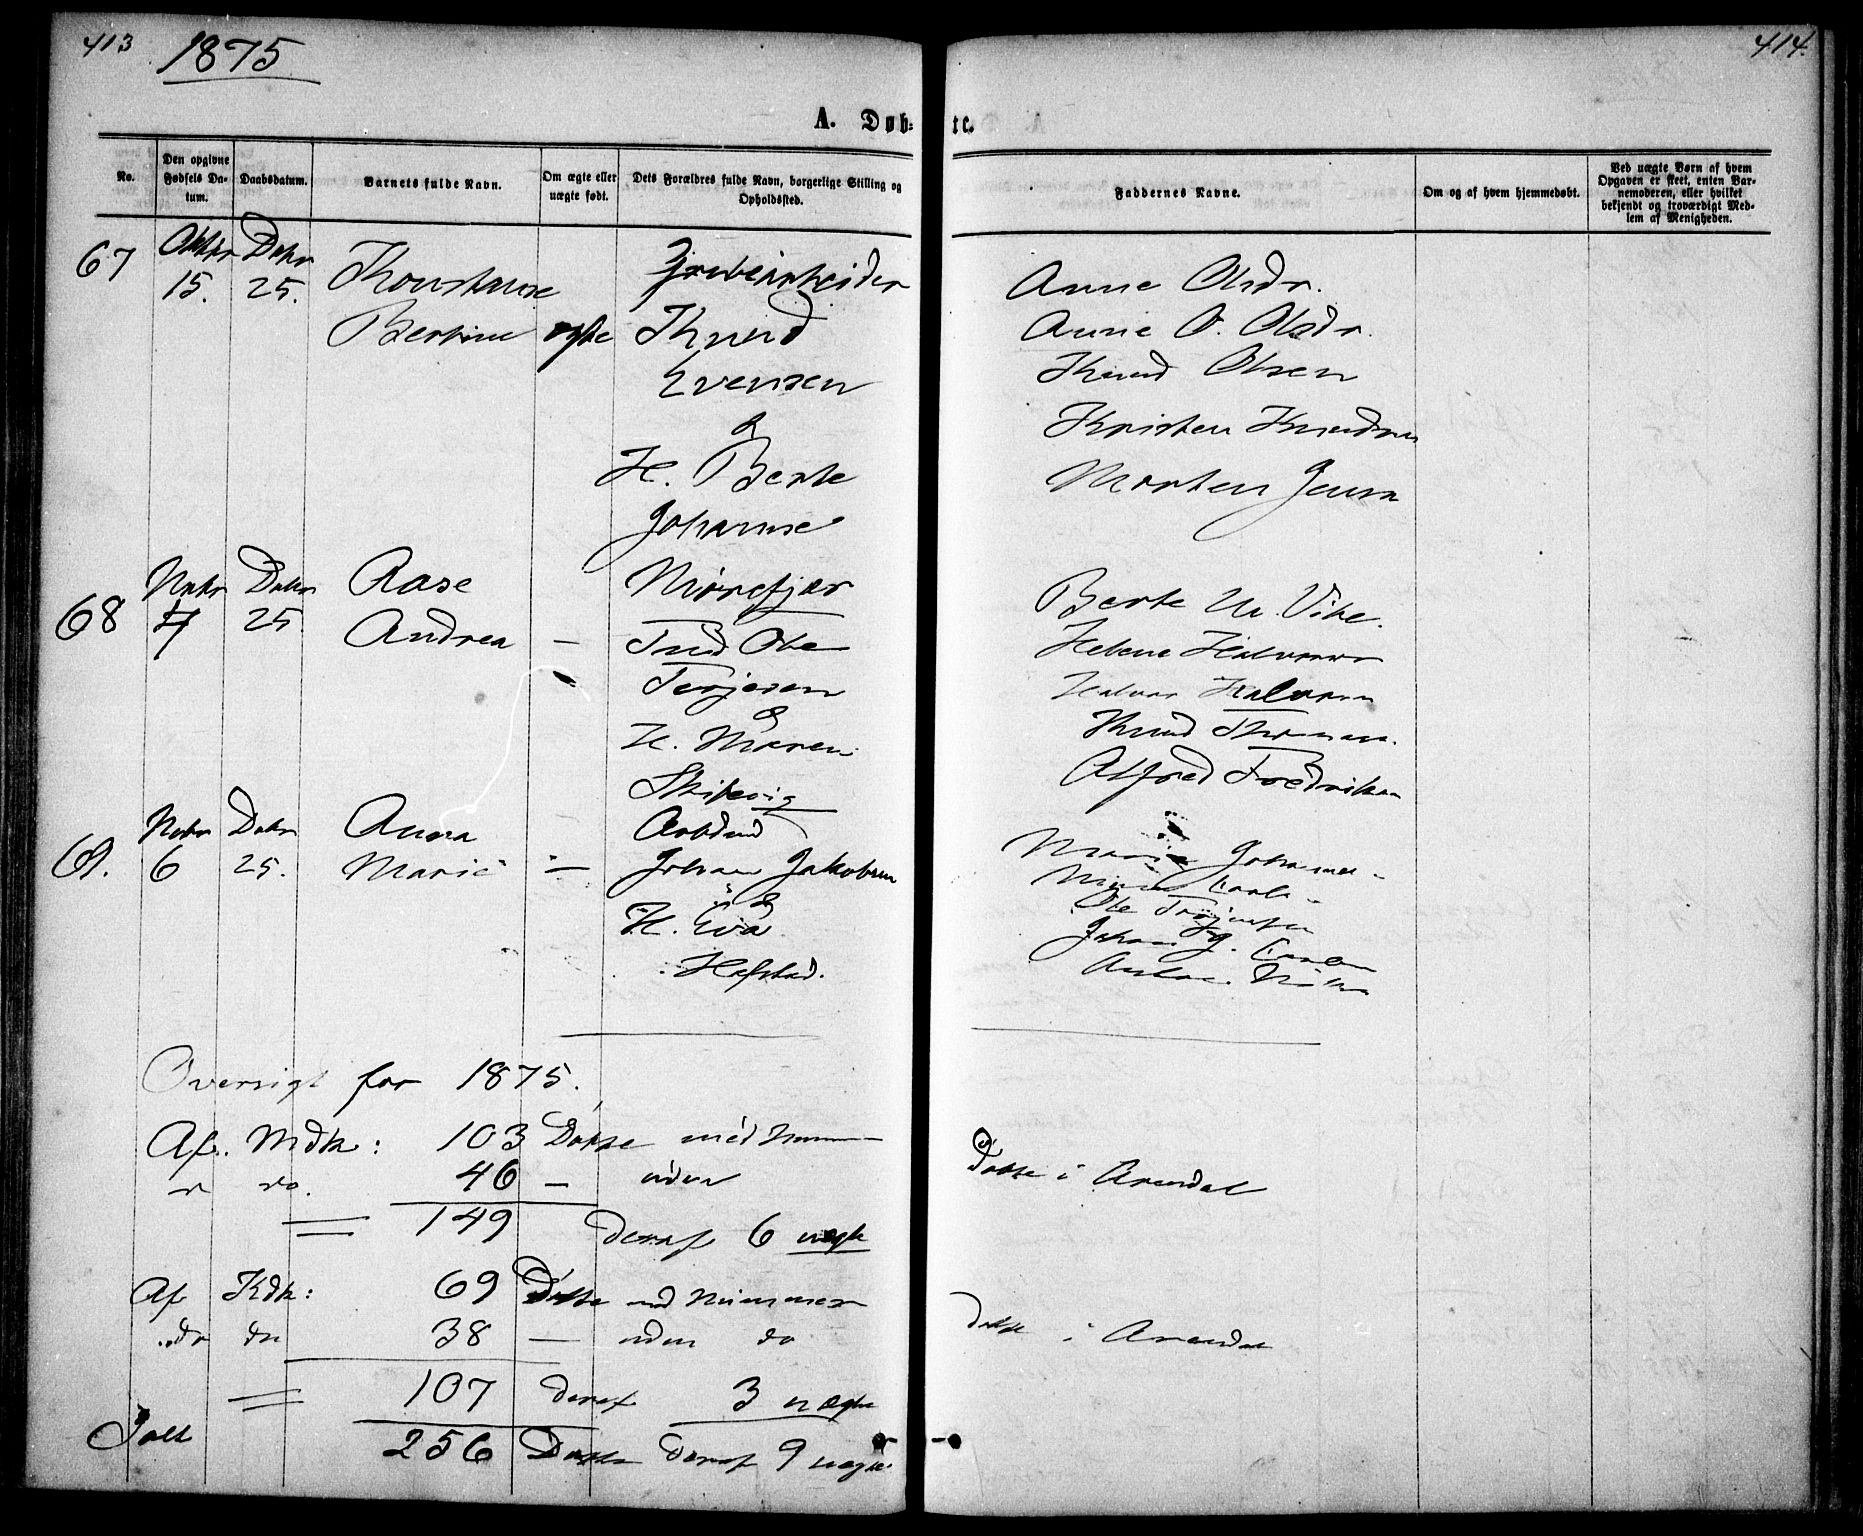 413
1875
414.
A. Døb-
te.
No.
Den opgivne Fødsels Da-
tum.
Daabsdatum.
Barnets fulde Navn.
Om ægte eller
uægte født.
Dets Forældres fulde Navn, borgerlige Stilling og
Opholdssted.
Faddernes Navne.
Om og af hvem hjemmedøbt.
Ved uægte Børn af hvem
Opgaven er skeet, enten Bar-
nemoderen, eller hvilket
bekjendt og troværdigt Med-
lem af Menigheden.
67
15. 25.
Konstanse
Bertine ægte
Knud
Evensen
&
H. Berte
Johanne
Anne Olsdr.
Anne O. Olsdr.
Knud Olsen
Kristen Knudsen
Morten Jensen
68
Nobr Debr
7 25
Aase
Andrea —
Mørefjær
Ole
Terjesen
&
H. Maren
Berte M. Vike.
Helene
Halvor Halvorsen
Knud
Alfred Fredriksen
69.
Nobr Debr
6 25.
Anna
Marie —
Arbdmd
Johan Jakobsen
&
H. Eva
Hafstad.
Marie
Ole Terjesen
Oversigt for 1875.
Af. Mdk: 103 Døbte med
do. 46 — uden
Døbte i Arendal
149 deraf 6 uægte
Af Kdk: 69 Døbte med Nummer
do do 38 — uden do
døbte i Arendal
107 deraf 3 uægte
Ialt 256 Døbte deraf 9 uægte